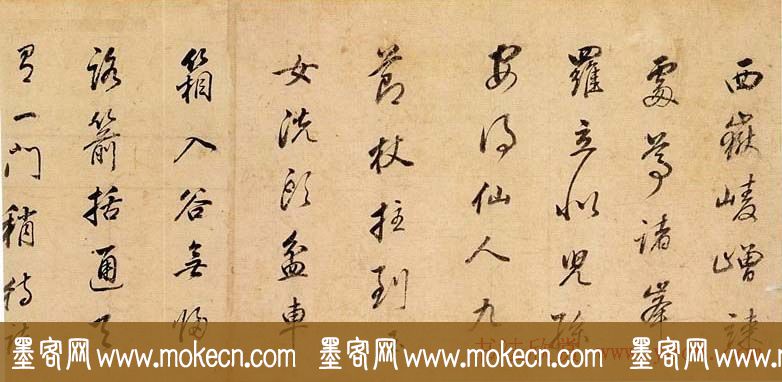 西嶽崚嶒竦
處尊諸峯
羅立似兒孫
安得仙人九
節杖拄到
女洗頭盆車
箱入谷無歸
路箭括通天
有一門稍待
墨客网 www.mokecn.com 墨客网 www.mokecn.com